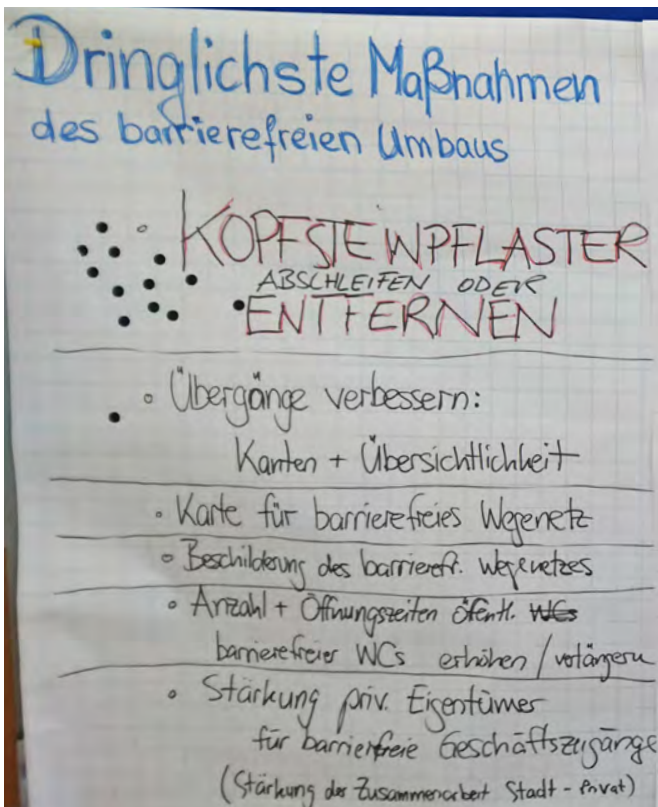 Dringlichste Maßnahmen
des barrierefreien Umbaus
KOPFSTEINPFLASTER
ABSCHLEIFEN ODER
ENTFERNEN
Übergänge verbessern:
Kanten + Übersichtlichkeit
Karte für barrierefreies Wegenetz
Beschilderung des barrierefr. Wegenetzes
Anzahl + Öffnungszeiten öfentl. WCs
barrierefreier WCs erhöhen / verlängern
Stärkung priv. Eigentümer
für barrierefreie Geschäftszugänge
(Stärkung der Zusammenarbeit Stadt - Privat)